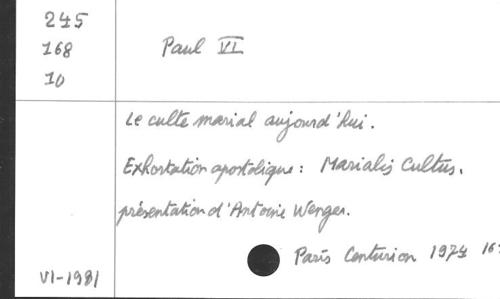 245
168
10
Paul VI
Le culte marial aujourd'hui.
Exhortation apostolique : Marialis Cultus.
présentation d'Antoine Wenger.
Paris Centurion 1974 16
VI-1981